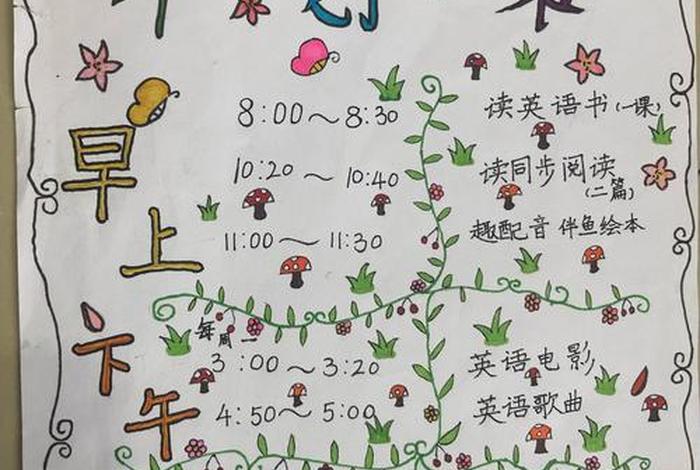 早上
8:00～8:30 读英语书(一课)
10:20～10:40 读同步阅读(二篇)
11:00～11:30 趣配音 伴鱼绘本
下午
每周一
3:00～3:20 英语电影
4:50～5:00 英语歌曲